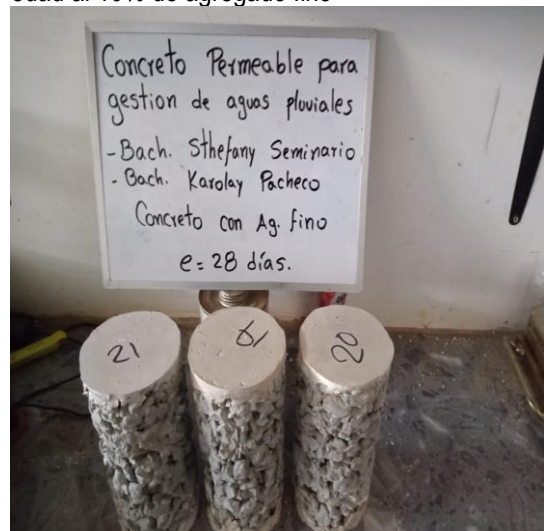 Concreto Permeable para
gestion de aguas pluviales
- Bach. Sthefany Seminario
- Bach. Karolay Pacheco
Concreto con Ag. fino
e = 28 días.
21
20